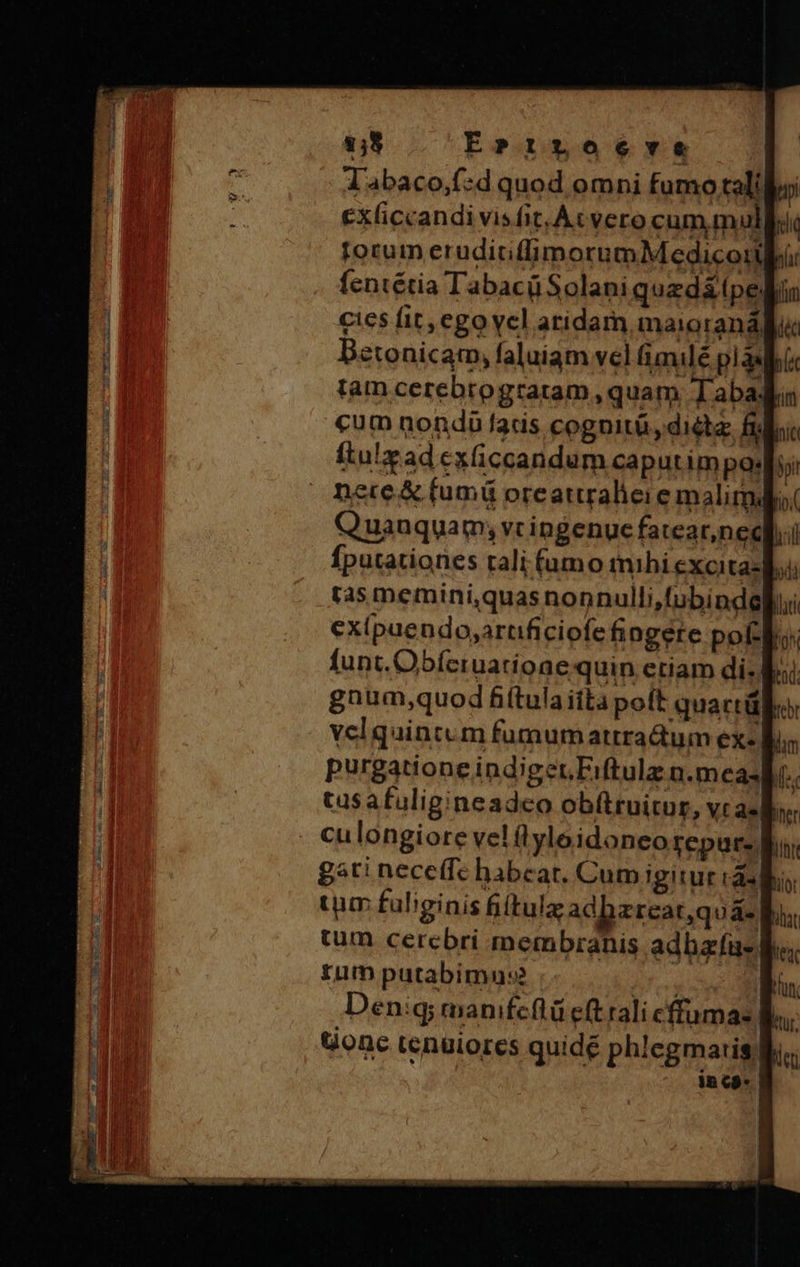 138 EPILOGVS
Tabaco, sed quod omni fumo tali
exſiccandi vis ſit. At vero cum mul
torum eruditiſſimorum Medicorũ
ſentẽtia Tabacũ Solani quædã ſpe
cies ſit, ego vel aridam, maioranã,
Betonicam, ſaluiam vel ſimilẽ plã-
tam cerebro gratam, quam Taba-
cum nondũ ſatis cognitũ, dictæ fi-
ſtulæ ad exſiccandum caput impo-
nere & fumũ ore attrahere malim.
Quanquam, vt ingenue fatear, nec
ſputationes tali fumo mihi excita-
tas memini, quas nonnulli, ſubinde
exſpuendo, artificioſe fingere poſ-
ſunt. Obſeruatione quin etiam di-
gnum, quod fiſtula iſta poſt quartũ
vel quintum fumum attractum ex-
purgatione indiget. Fiſtulæ n. mea-
tus a fuligine adeo obſtruitur, vt a-
cu longiore vel ſtylo idoneo repur-
gari neceſſe habeat. Cum igitur tã-
tum fuliginis fiſtulæ adhæreat, quã-
tum cerebri membranis adhæſu-
rum putabimus?
Deniq; manifeſtũ eſt tali effuma-
tione tenuiores quidẽ phlegmatis
in ce-